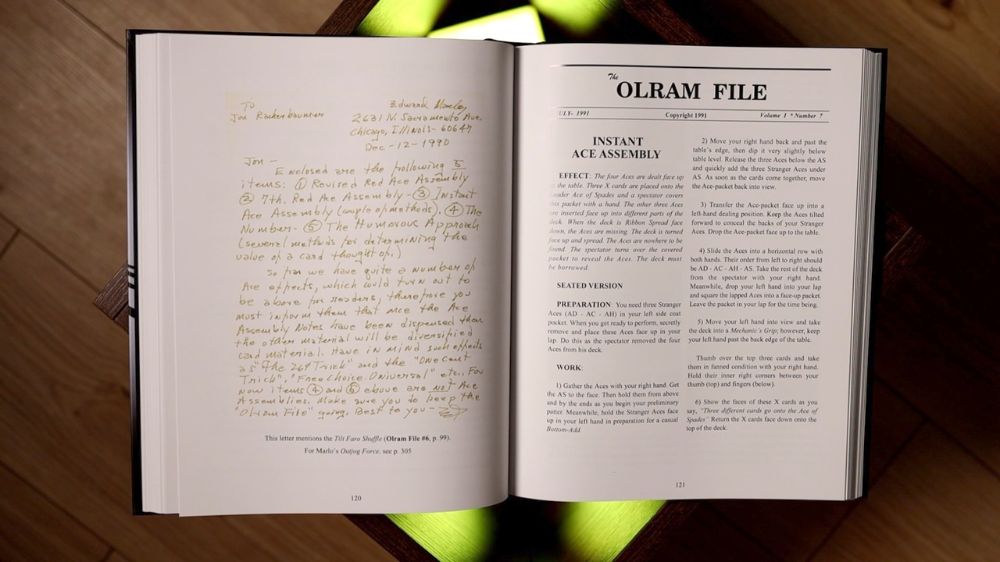 To
Jon Rackerbaumer
Edward Marlo,
2631 N. Sacramento Ave.
Chicago, Illinois - 60647
Dec - 12 - 1990
Jon -
Enclosed are the following 5
items: ① Revised Red Ace Assembly
② 7th. Red Ace Assembly - ③ Instant
Ace Assembly (couple of methods), ④ The
Number - ⑤ The Humorous Approach
(several methods for determining the
value of a card thought of.)
So far we have quite a number of
Ace effects, which could turn out to
be above for readers, therefore you
must inform them that once the Ace
Assembly Notes have been dispensed then
the other material will be diversified
card material. Have in mind such effects
as "The 26th Trick" and the "One Cent
Trick", "Free Choice Universal" etc. For
now items ④ and ⑤ above are not Ace
Assemblies. Make sure you do keep the
"Olram File" going. Best to you -
This letter mentions the Tilt Faro Shuffle (Olram File #6, p. 99).
For Marlo's Outjog Force, see p. 305
120
The
OLRAM FILE
JULY- 1991 Copyright 1991 Volume 1 * Number 7
INSTANT
ACE ASSEMBLY
EFFECT: The four Aces are dealt face up
on the table. Three X cards are placed onto the
Leader Ace of Spades and a spectator covers
this packet with a hand. The other three Aces
are inserted face up into different parts of the
deck. When the deck is Ribbon Spread face
down, the Aces are missing. The deck is turned
face up and spread. The Aces are nowhere to be
found. The spectator turns over the covered
packet to reveal the Aces. The deck must
be borrowed.
SEATED VERSION
PREPARATION: You need three Stranger
Aces (AD - AC - AH) in your left side coat
pocket. When you get ready to perform, secretly
remove and place these Aces face up in your
lap. Do this as the spectator removed the four
Aces from his deck.
WORK:
1) Gather the Aces with your right hand. Get
the AS to the face. Then hold them from above
and by the ends as you begin your preliminary
patter. Meanwhile, hold the Stranger Aces face
up in your left hand in preparation for a casual
Bottom-Add.
2) Move your right hand back and past the
table's edge, then dip it very slightly below
table level. Release the three Aces below the AS
and quickly add the three Stranger Aces under
AS. As soon as the cards come together, move
the Ace-packet back into view.
3) Transfer the Ace-packet face up into a
left-hand dealing position. Keep the Aces tilted
forward to conceal the backs of your Stranger
Aces. Drop the Ace-packet face up to the table.
4) Slide the Aces into a horizontal row with
both hands. Their order from left to right should
be AD - AC - AH - AS. Take the rest of the deck
from the spectator with your right hand.
Meanwhile, drop your left hand into your lap
and square the lapped Aces into a face-up packet.
Leave the packet in your lap for the time being.
5) Move your left hand into view and take
the deck into a Mechanic's Grip; however, keep
your left hand past the back edge of the table.
Thumb over the top three cards and take
them in fanned condition with your right hand.
Hold their inner right corners between your
thumb (top) and fingers (below).
6) Show the faces of these X cards as you
say, "Three different cards go onto the Ace of
Spades". Return the X cards face down onto the
top of the deck.
121